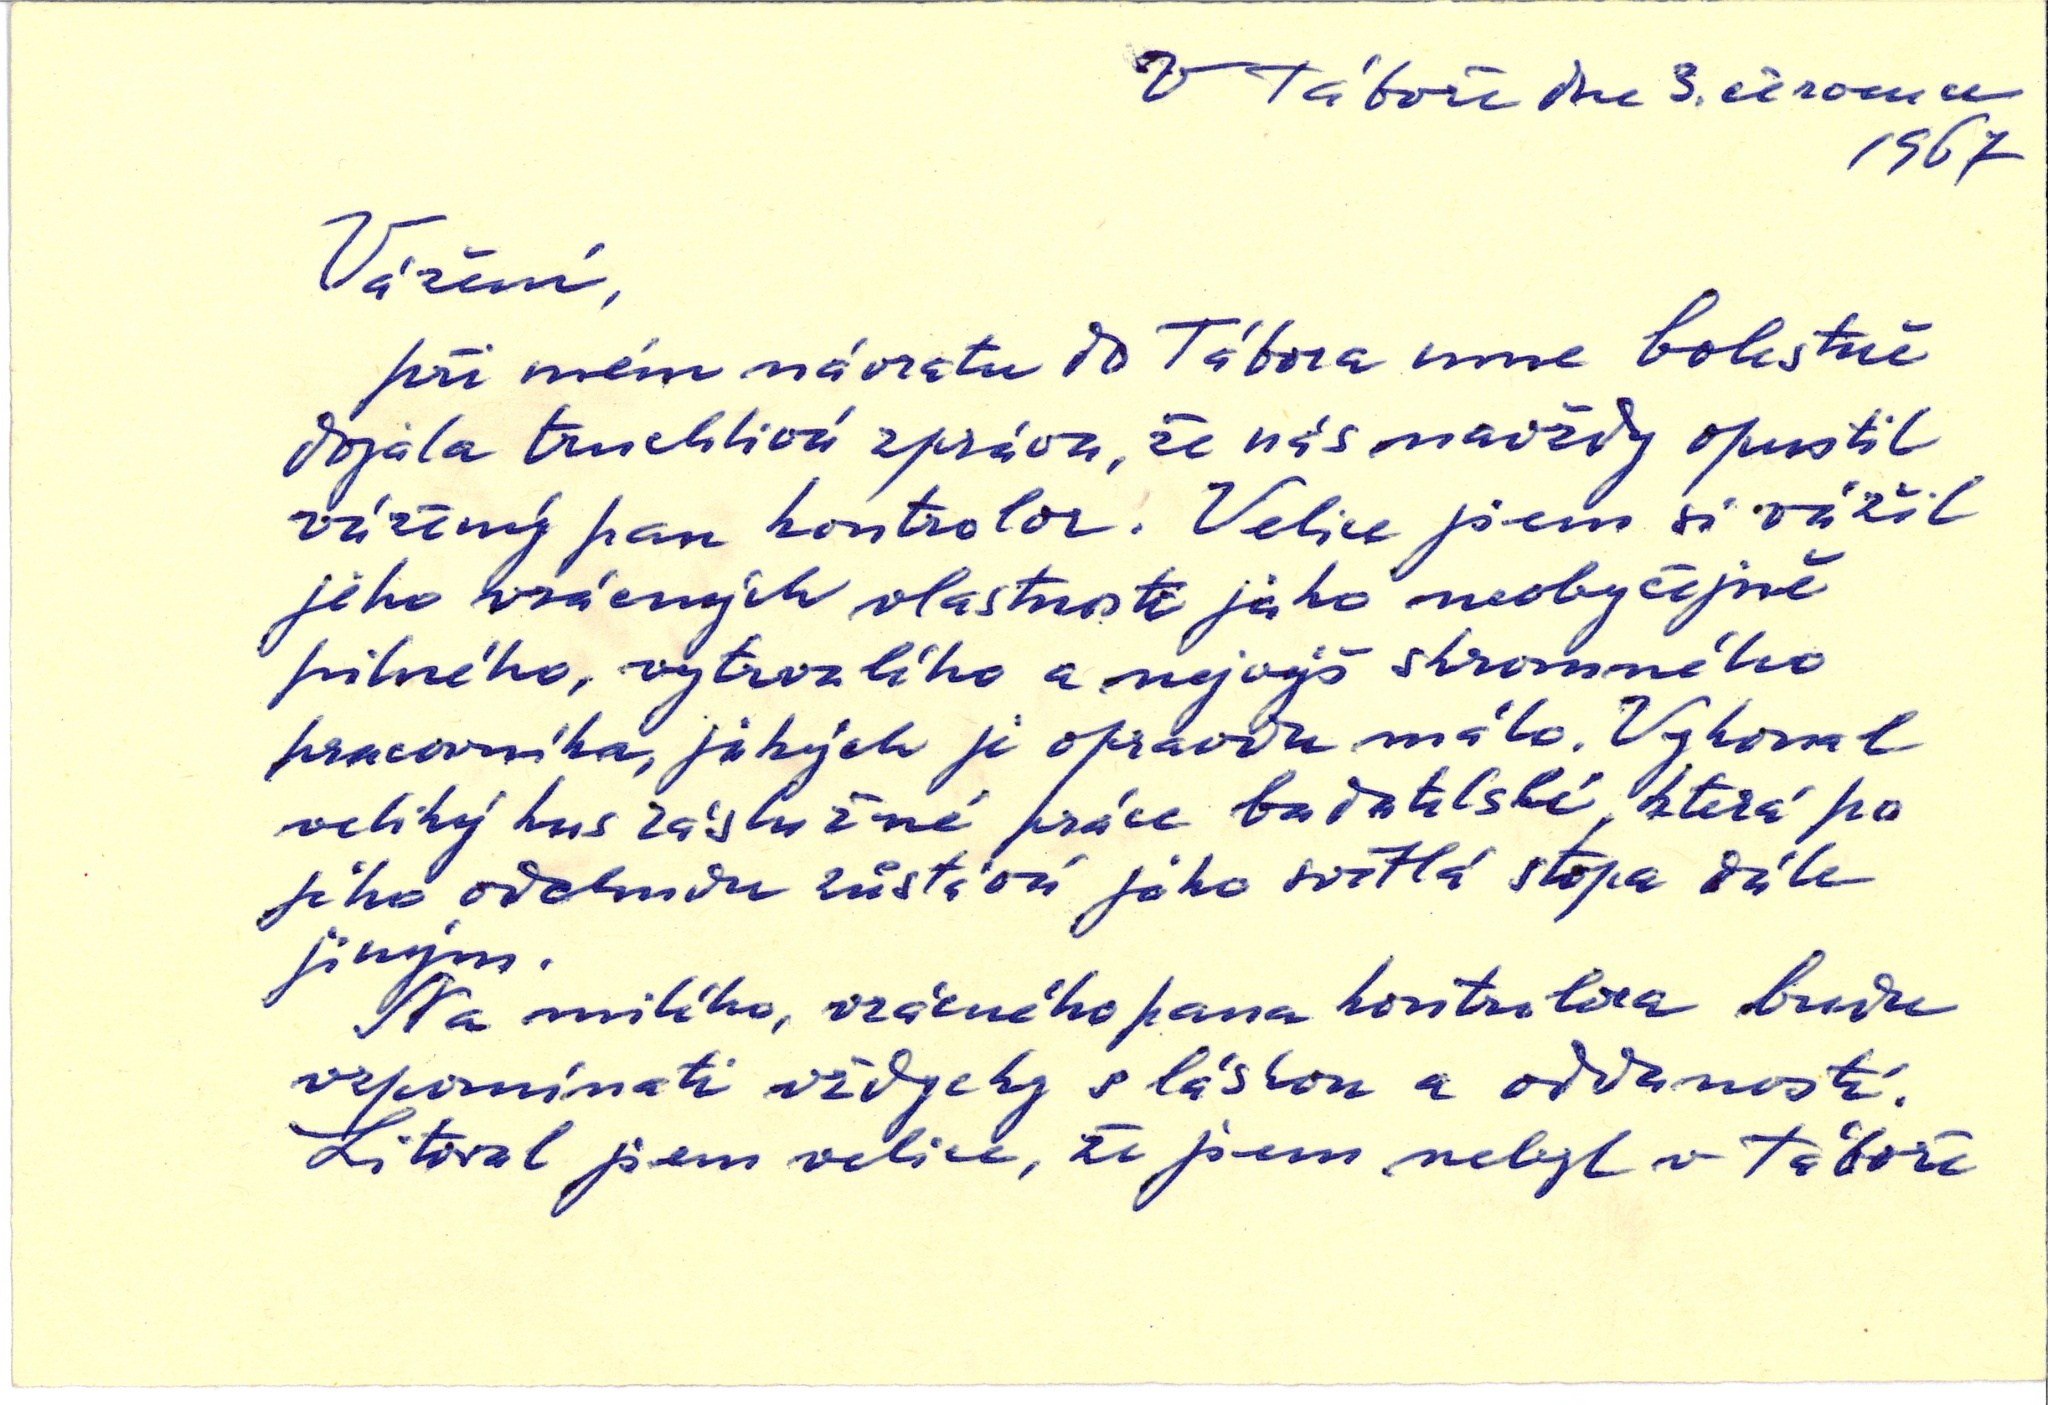 V Táboře dne 3. července
1967
Vážení,
při mém návratu do Tábora mne bolestně
dojala truchlivá zpráva, že nás navždy opustil
vážený pan kontrolor. Velice jsem si vážil
jeho vzácných vlastností jako neobyčejně
pilného, vytrvalého a nejvýš skromného
pracovníka, jakých je opravdu málo. Vykonal
veliký kus záslužné práce badatelské, která po
jeho odchodu zůstává jako světlá stopa dále
jiným.
Na milého, vzácného pana kontrolora budu
vzpomínati vždycky s láskou a oddaností.
Litoval jsem velice, že jsem nebyl v Táboře